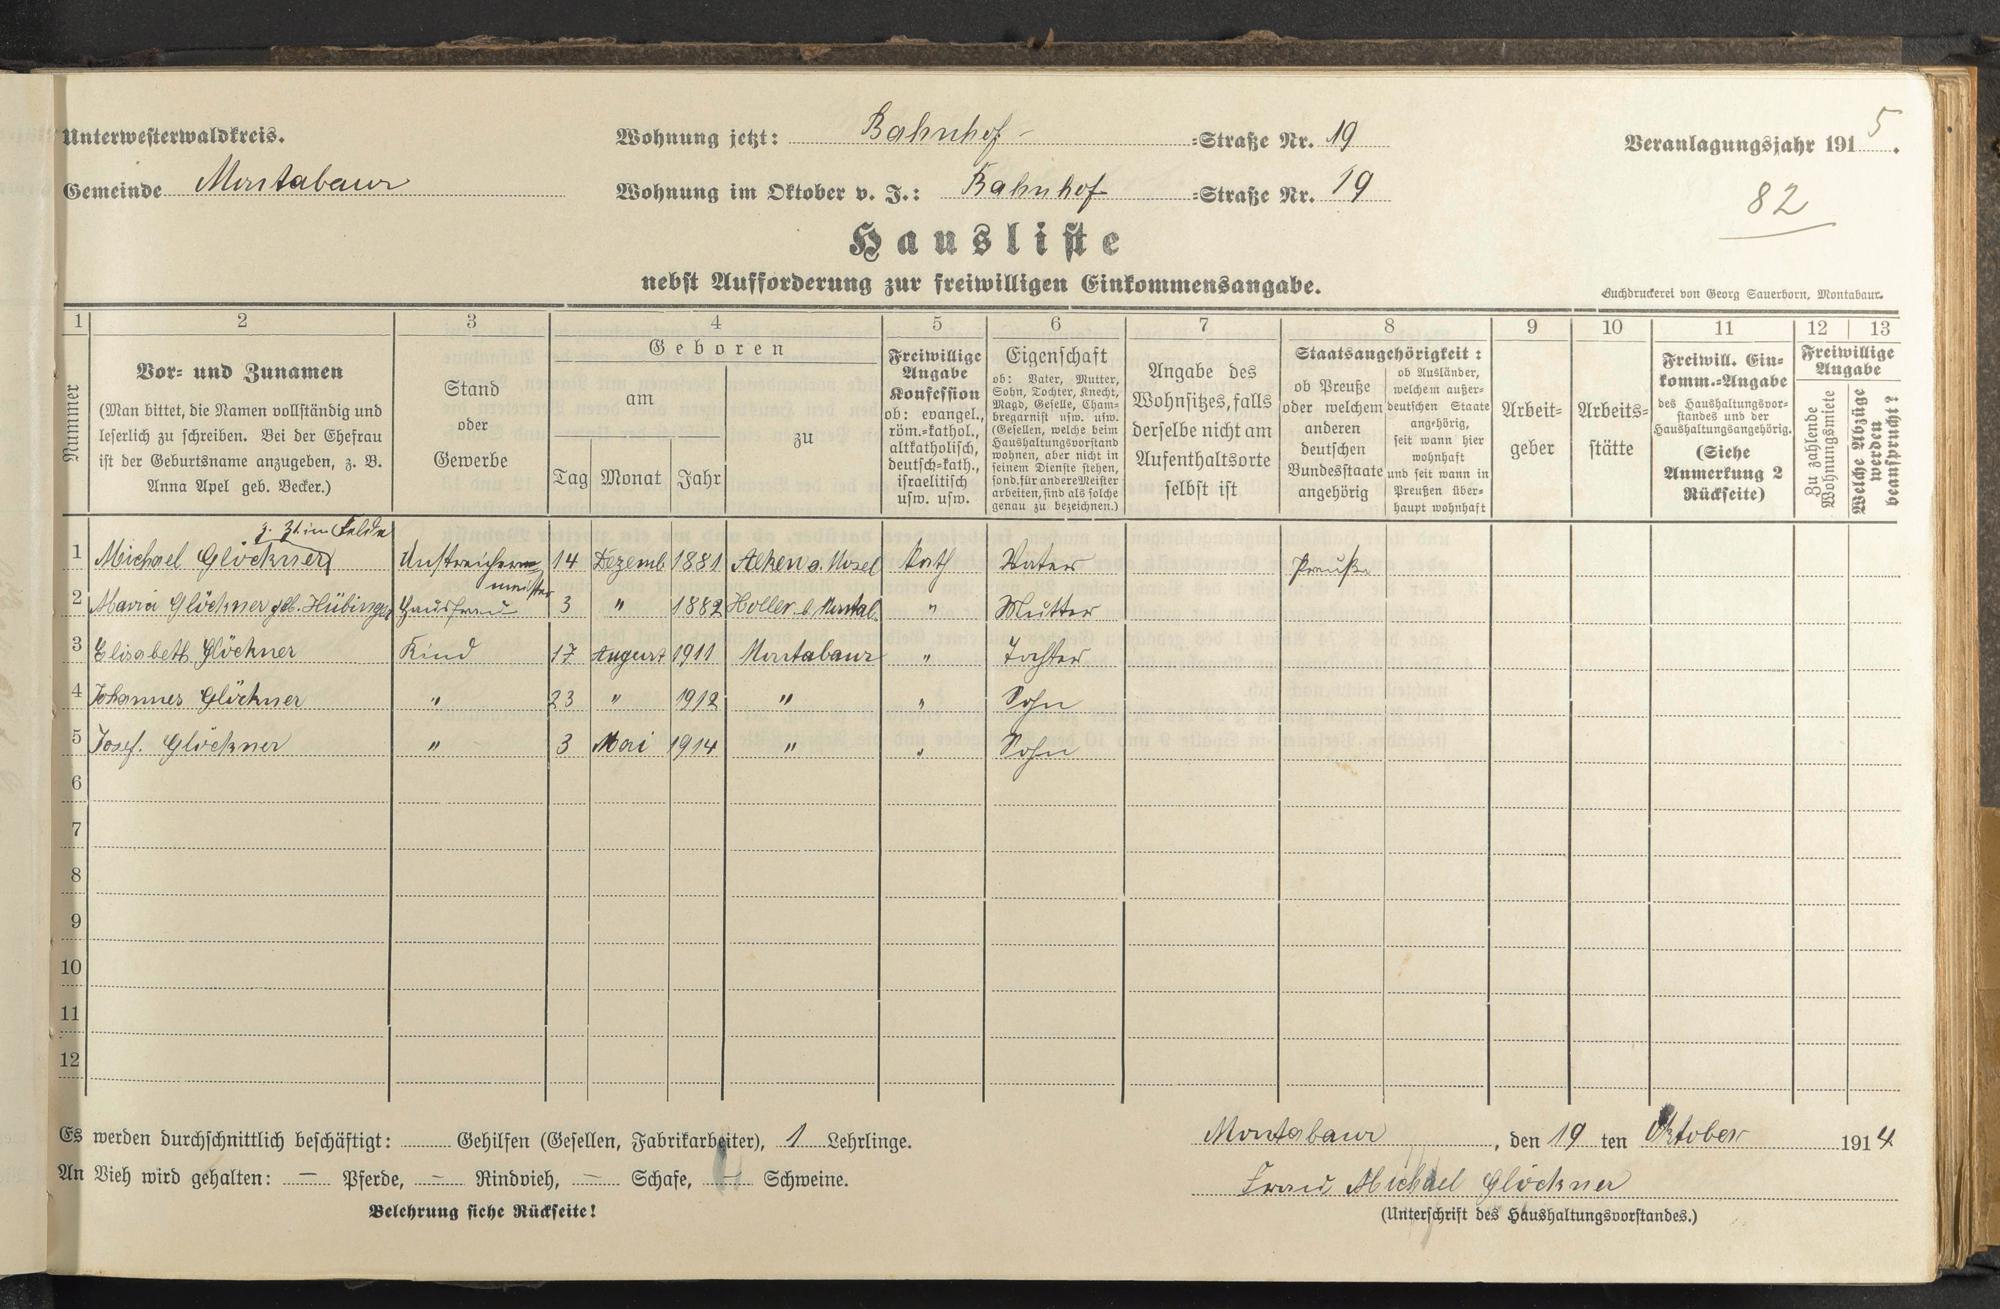 Unterwesterwaldkreis.
Wohnung jetzt: Bahnhof- =Straße Nr. 19
Veranlagungsjahr 1915.
Gemeinde Montabaur
Wohnung im Oktober v. J.: Bahnhof =Straße Nr. 19
82
Hausliste
nebst Aufforderung zur freiwilligen Einkommensangabe.
Buchdruckerei von Georg Sauerborn, Montabaur.
1 2 3 4 5 6 7 8 9 10 11 12 13
Nummer
Vor- und Zunamen
(Man bittet, die Namen vollständig und
leserlich zu schreiben. Bei der Ehefrau
ist der Geburtsname anzugeben, z. B.
Anna Apel geb. Becker.)
Stand
oder
Gewerbe
Geboren
am
Tag Monat Jahr
zu
Freiwillige
Angabe
Konfession
ob: evangel.,
röm.-kathol.,
altkatholisch,
deutsch-kath.,
israelitisch
usw. usw.
Eigenschaft
ob: Vater, Mutter,
Sohn, Tochter, Knecht,
Magd, Geselle, Cham-
bregarnist usw. usw.
(Gesellen, welche beim
Haushaltungsvorstand
wohnen, aber nicht in
seinem Dienste stehen,
sond. für andere Meister
arbeiten, sind als solche
genau zu bezeichnen.)
Angabe des
Wohnsitzes, falls
derselbe nicht am
Aufenthaltsorte
selbst ist
Staatsangehörigkeit:
ob Preuße
oder welchem
anderen
deutschen
Bundesstaate
angehörig
ob Ausländer,
welchem außer-
deutschen Staate
angehörig,
seit wann hier
wohnhaft
und seit wann in
Preußen über-
haupt wohnhaft
Arbeit-
geber
Arbeits-
stätte
Freiwill. Ein-
komm.-Angabe
des Haushaltungsvor-
standes und der
Haushaltungsangehörig.
(Siehe
Anmerkung 2
Rückseite)
Freiwillige
Angabe
Zu zahlende
Wohnungsmiete
Welche Abzüge
werden
beansprucht?
z. Zt. im Felde
1 Michael Glöckner Anstreicher- 14 Dezemb 1881 Alken a. Mosel Kath Vater Preuße
meister
2 Maria Glöckner geb. Hübinger Hausfrau 3 " 1882 Holler b. Montab. " Mutter
3 Elisabeth Glöckner Kind 17 August 1911 Montabaur " Tochter
4 Johannes Glöckner " 23 " 1912 " " Sohn
5 Josef. Glöckner " 3 Mai 1914 " " Sohn
6
7
8
9
10
11
12
Es werden durchschnittlich beschäftigt: Gehilfen (Gesellen, Fabrikarbeiter), 1 Lehrlinge.
Montabaur, den 19 ten Oktober 1914
An Vieh wird gehalten: — Pferde, — Rindvieh, — Schafe, — Schweine.
Frau Michael Glöckner
Belehrung siehe Rückseite!
(Unterschrift des Haushaltungsvorstandes.)